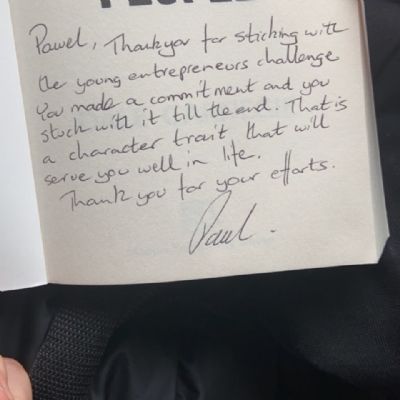 Pawel, Thankyou for sticking with
the young entrepreneurs challenge
You made a commitment and you
stuck with it till the end. That is
a character trait that will
serve you well in life.
Thank you for your efforts.
Paul.